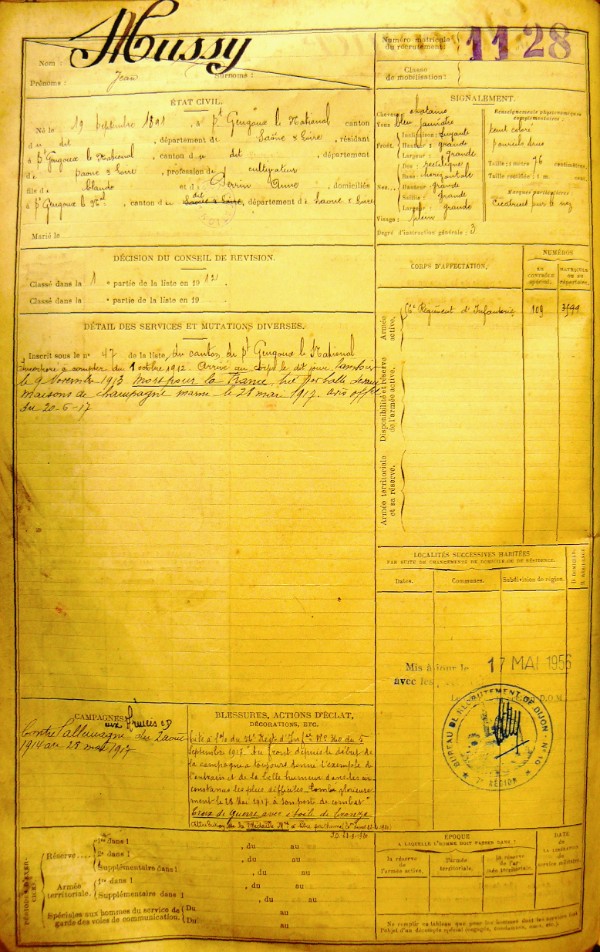 Nom : Mussy
Prénoms : Jean Surnoms :
Numéro matricule du recrutement : 1128
Classe de mobilisation :
ÉTAT CIVIL.
Né le 19 Septembre 1891, à St Gengoux le National canton
d u dit, département de Saône & Loire, résidant
à St Gengoux le National, canton d u dit, département
de Saône & Loire, profession de cultivateur
fils de Claude et d e Perrin Anne, domiciliés
à St Gengoux le Nal, canton d u dit, département d e Saône & Loire
Marié le
SIGNALEMENT.
Cheveux châtains
Yeux bleu
Front. Inclinaison : fuyante
Hauteur : grande
Largeur : grande
Nez. Dos : rectiligne
Base : horizontale
Hauteur : grande
Saillie : grande
Largeur : grande
Visage : plein
Renseignements physionomiques complémentaires :
teint coloré
Taille : 1 mètre 76 centimètres.
Taille rectifiée : 1 m. cent.
Marques particulières :
Cicatrice sur le nez
Degré d'instruction générale : 3
DÉCISION DU CONSEIL DE REVISION.
Classé dans la 1e partie de la liste en 1912
Classé dans la e partie de la liste en 19
CORPS D'AFFECTATION.
NUMÉROS
AU CONTRÔLE SPÉCIAL.
MATRICULE OU AU RÉPERTOIRE.
Armée active.
56e Régiment d'Infanterie 109
Disponibilité et réserve de l'armée active.
Armée territoriale et sa réserve.
DÉTAIL DES SERVICES ET MUTATIONS DIVERSES.
Inscrit sous le n° 47 de la liste du canton de St Gengoux le National
Incorporé à compter du 1 octobre 1912. Arrivé au corps le dit jour.
le 9 Novembre 1913. Mort pour la France, tué par balle
maisons de champagne marne le 28 mai 1917. avis offel
du 20-6-17
LOCALITÉS SUCCESSIVES HABITÉES
PAR SUITE DE CHANGEMENTS DE DOMICILE OU DE RÉSIDENCE.
Dates. Communes. Subdivisions de région. D. domicile. R. résidence.
Mis à jour le 17 MAI 1956
avec les
BUREAU DE RECRUTEMENT DE DIJON
7e RÉGION
CAMPAGNES.
Contre l'allemagne du 2 août
1914 au 28 mai 1917
BLESSURES, ACTIONS D'ÉCLAT,
DÉCORATIONS, ETC.
Cité à l'o du 56e Régt d'Infie N° 360 du 5
Septembre 1917. "Au front depuis le début de
la campagne a toujours donné l'exemple de
l'entrain et de la belle humeur dans les cir
constances les plus difficiles. Tombé glorieuse
ment le 28 Mai 1917 à son poste de combat"
Croix de Guerre avec étoile de bronze
PÉRIODES D'EXERCICES.
Réserve
1re dans l , du au
2e dans l , du au
Supplémentaire dans l , du au
Armée territoriale.
1re dans l , du au
Supplémentaire dans l , du au
Spéciales aux hommes du service de gardes des voies de communication. Du au
Du au
ÉPOQUE
À LAQUELLE L'HOMME DOIT PASSER DANS :
la réserve de l'armée active.
l'armée territoriale.
la réserve de l'armée territoriale.
DATE
de la libération du service militaire.